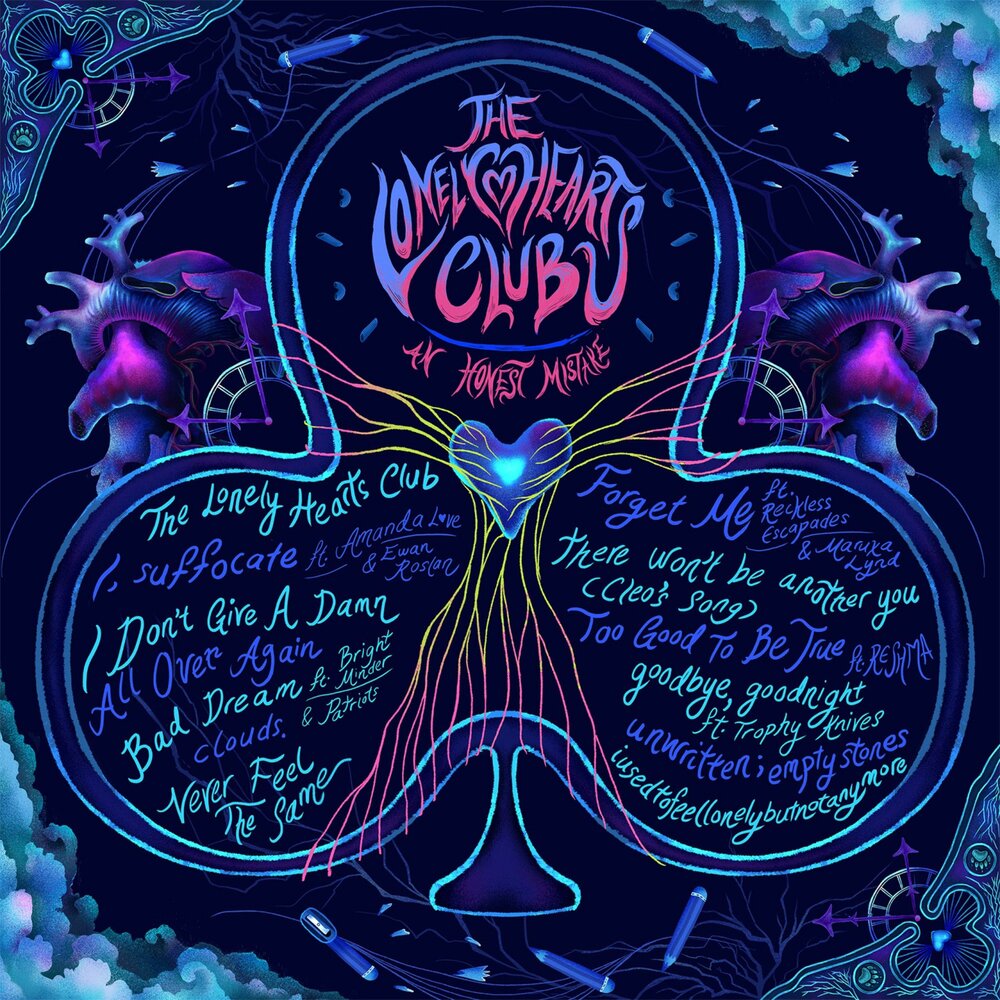 THE
LONELY HEARTS
CLUB
AN HONEST MISTAKE
The Lonely Hearts Club
I, suffocate ft. Amanda Love
& Ewan
Roslan
I Don't Give A Damn
All Over Again
Bad Dream ft. Bright
Minder
& Patriots
clouds.
Never Feel
The Same
Forget Me ft.
Reckless
Escapades
& Maruxa
Lynd
there won't be another you
(Cleo's Song)
Too Good To Be True ft. RESHMA
goodbye, goodnight
ft. Trophy Knives
unwritten; empty stones
iusedtofeellonelybutnotanymore